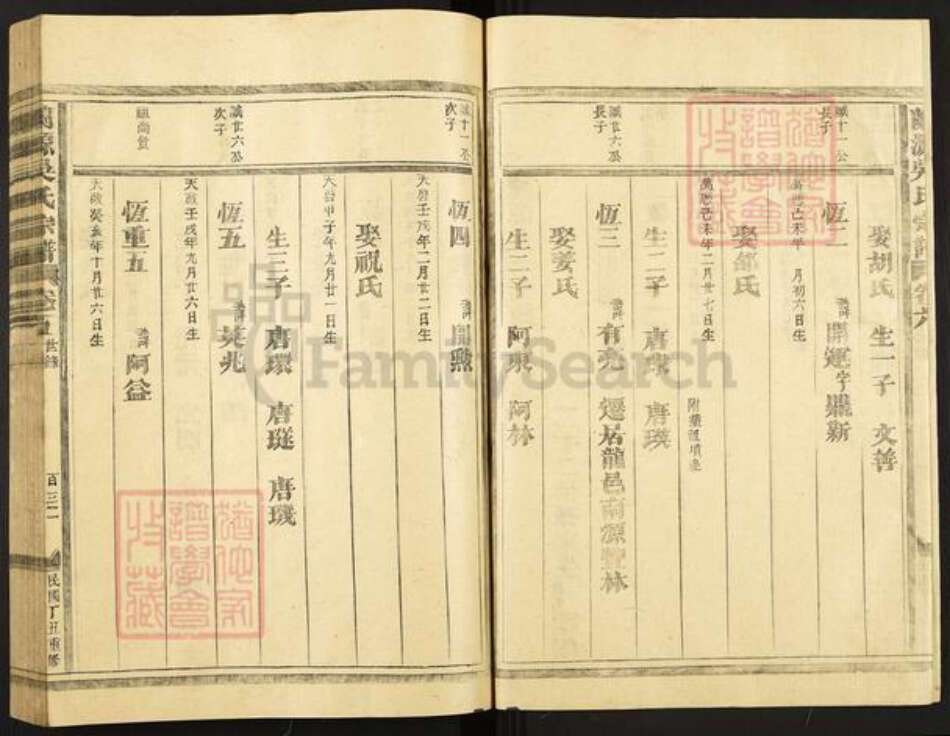 娶胡氏 生一子 文善
誠十一公長子
恆二 諱開運字鼎新
萬曆己未年 月初六日生
娶鄒氏
萬曆己未年二月廿七日生
附葬祖墳邊
生二子 唐 唐瑛
誠廿六公長子
恆三 諱有堯 遷居龍邑南源 林
娶姜氏
生二子 阿東 阿林
誠十一公次子
恆四 諱開勳
天啓壬戌年二月廿二日生
娶祝氏
天啓甲子年九月廿一日生
生三子 唐環 唐璡 唐璣
誠廿六公次子
恆五 諱英兆
天啟壬戌年九月廿六日生
恆重五 諱阿益
天啟癸亥年十月廿六日生
吳氏宗譜 卷 世錄
百三二
民國丁丑重修
譜學會收藏
譜學會收藏
FamilySearch